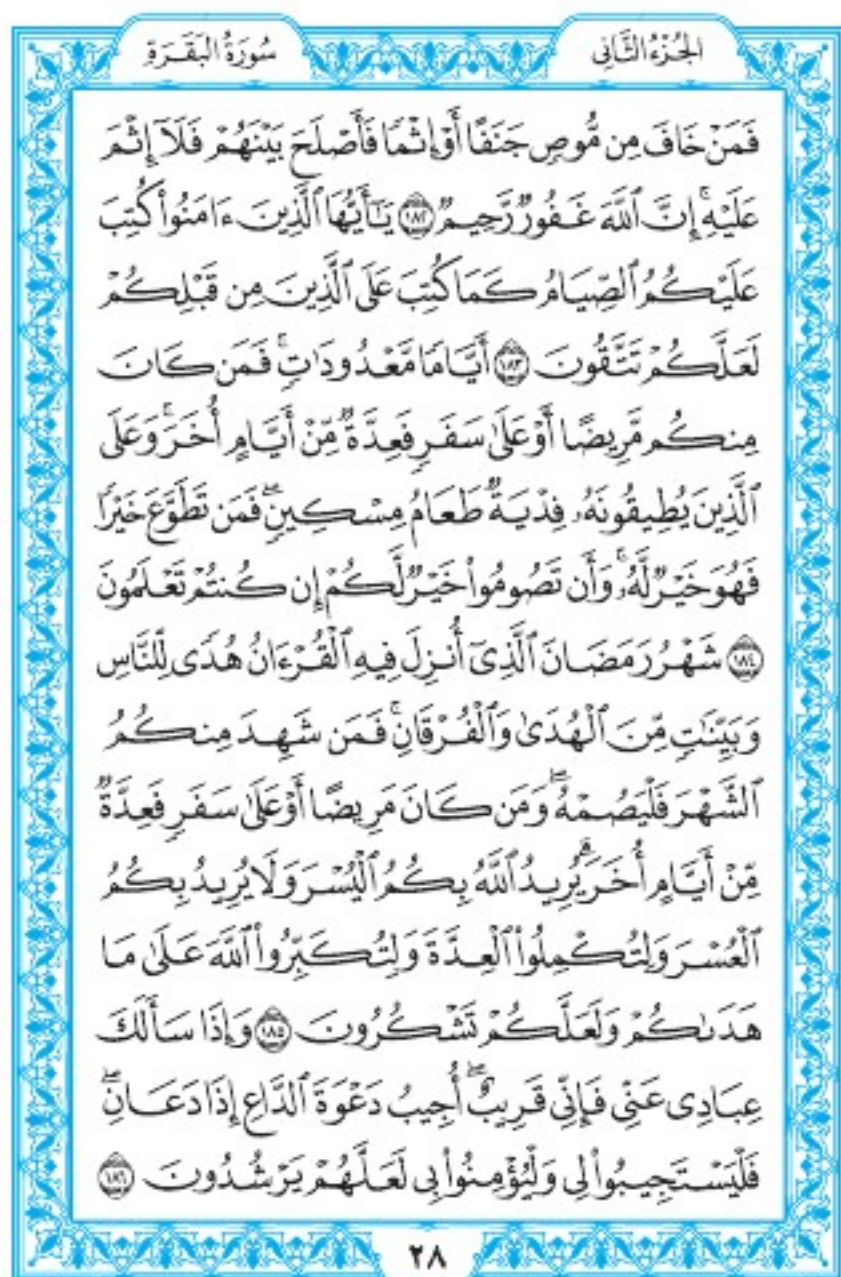 الجُزْءُ الثَّانِى
سُورَةُ البَقَرَةِ
فَمَنْ خَافَ مِن مُّوصٍ جَنَفًا أَوْ إِثْمًا فَأَصْلَحَ بَيْنَهُمْ فَلَآ إِثْمَ
عَلَيْهِ ۚ إِنَّ ٱللَّهَ غَفُورٌ رَّحِيمٌ ﴿١٨٢﴾ يَـٰٓأَيُّهَا ٱلَّذِينَ ءَامَنُوا۟ كُتِبَ
عَلَيْكُمُ ٱلصِّيَامُ كَمَا كُتِبَ عَلَى ٱلَّذِينَ مِن قَبْلِكُمْ
لَعَلَّكُمْ تَتَّقُونَ ﴿١٨٣﴾ أَيَّامًا مَّعْدُودَٰتٍ ۚ فَمَن كَانَ
مِنكُم مَّرِيضًا أَوْ عَلَىٰ سَفَرٍ فَعِدَّةٌ مِّنْ أَيَّامٍ أُخَرَ ۚ وَعَلَى
ٱلَّذِينَ يُطِيقُونَهُۥ فِدْيَةٌ طَعَامُ مِسْكِينٍ ۖ فَمَن تَطَوَّعَ خَيْرًا
فَهُوَ خَيْرٌ لَّهُۥ ۚ وَأَن تَصُومُوا۟ خَيْرٌ لَّكُمْ إِن كُنتُمْ تَعْلَمُونَ
﴿١٨٤﴾ شَهْرُ رَمَضَانَ ٱلَّذِىٓ أُنزِلَ فِيهِ ٱلْقُرْءَانُ هُدًى لِّلنَّاسِ
وَبَيِّنَـٰتٍ مِّنَ ٱلْهُدَىٰ وَٱلْفُرْقَانِ ۚ فَمَن شَهِدَ مِنكُمُ
ٱلشَّهْرَ فَلْيَصُمْهُ ۖ وَمَن كَانَ مَرِيضًا أَوْ عَلَىٰ سَفَرٍ فَعِدَّةٌ
مِّنْ أَيَّامٍ أُخَرَ ۗ يُرِيدُ ٱللَّهُ بِكُمُ ٱلْيُسْرَ وَلَا يُرِيدُ بِكُمُ
ٱلْعُسْرَ وَلِتُكْمِلُوا۟ ٱلْعِدَّةَ وَلِتُكَبِّرُوا۟ ٱللَّهَ عَلَىٰ مَا
هَدَىٰكُمْ وَلَعَلَّكُمْ تَشْكُرُونَ ﴿١٨٥﴾ وَإِذَا سَأَلَكَ
عِبَادِى عَنِّى فَإِنِّى قَرِيبٌ ۖ أُجِيبُ دَعْوَةَ ٱلدَّاعِ إِذَا دَعَانِ ۖ
فَلْيَسْتَجِيبُوا۟ لِى وَلْيُؤْمِنُوا۟ بِى لَعَلَّهُمْ يَرْشُدُونَ ﴿١٨٦﴾
٢٨